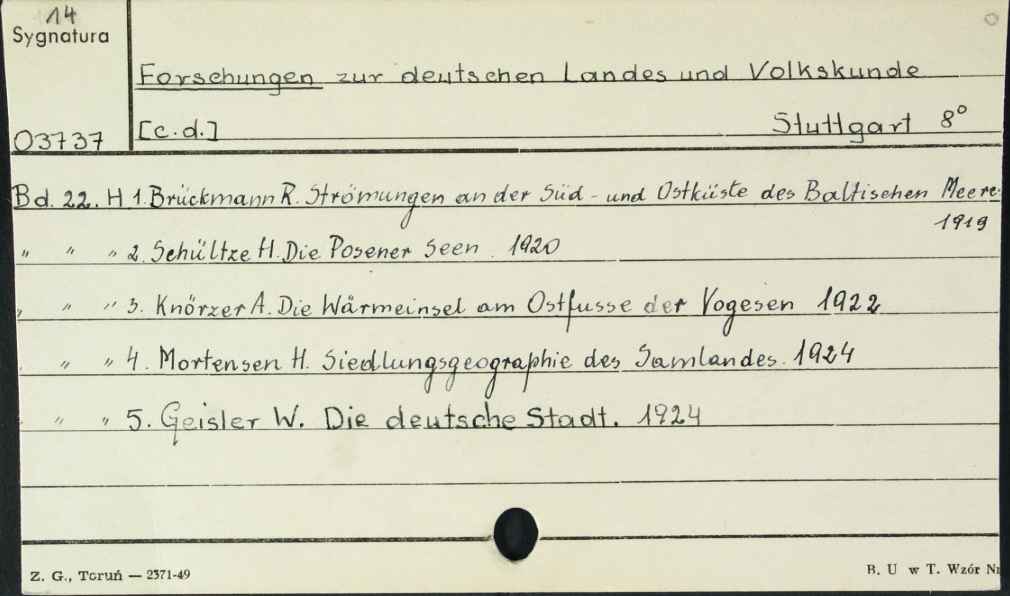 14
Sygnatura
Forschungen zur deutschen Landes und Volkskunde
03737 [c.d.] Stuttgart 8°
Bd. 22. H 1. Brückmann R. Strömungen an der Süd - und Ostküste des Baltischen Meere
1919
" " " 2. Schültze H. Die Posener Seen. 1920
" " " 3. Knörzer A. Die Wärmeinsel am Ostfusse der Vogesen 1922
" " " 4. Mortensen H. Siedlungsgeographie des Samlandes. 1924
" " " 5. Geisler W. Die deutsche Stadt. 1924
Z. G., Toruń — 2371-49 B. U w T. Wzór Nr